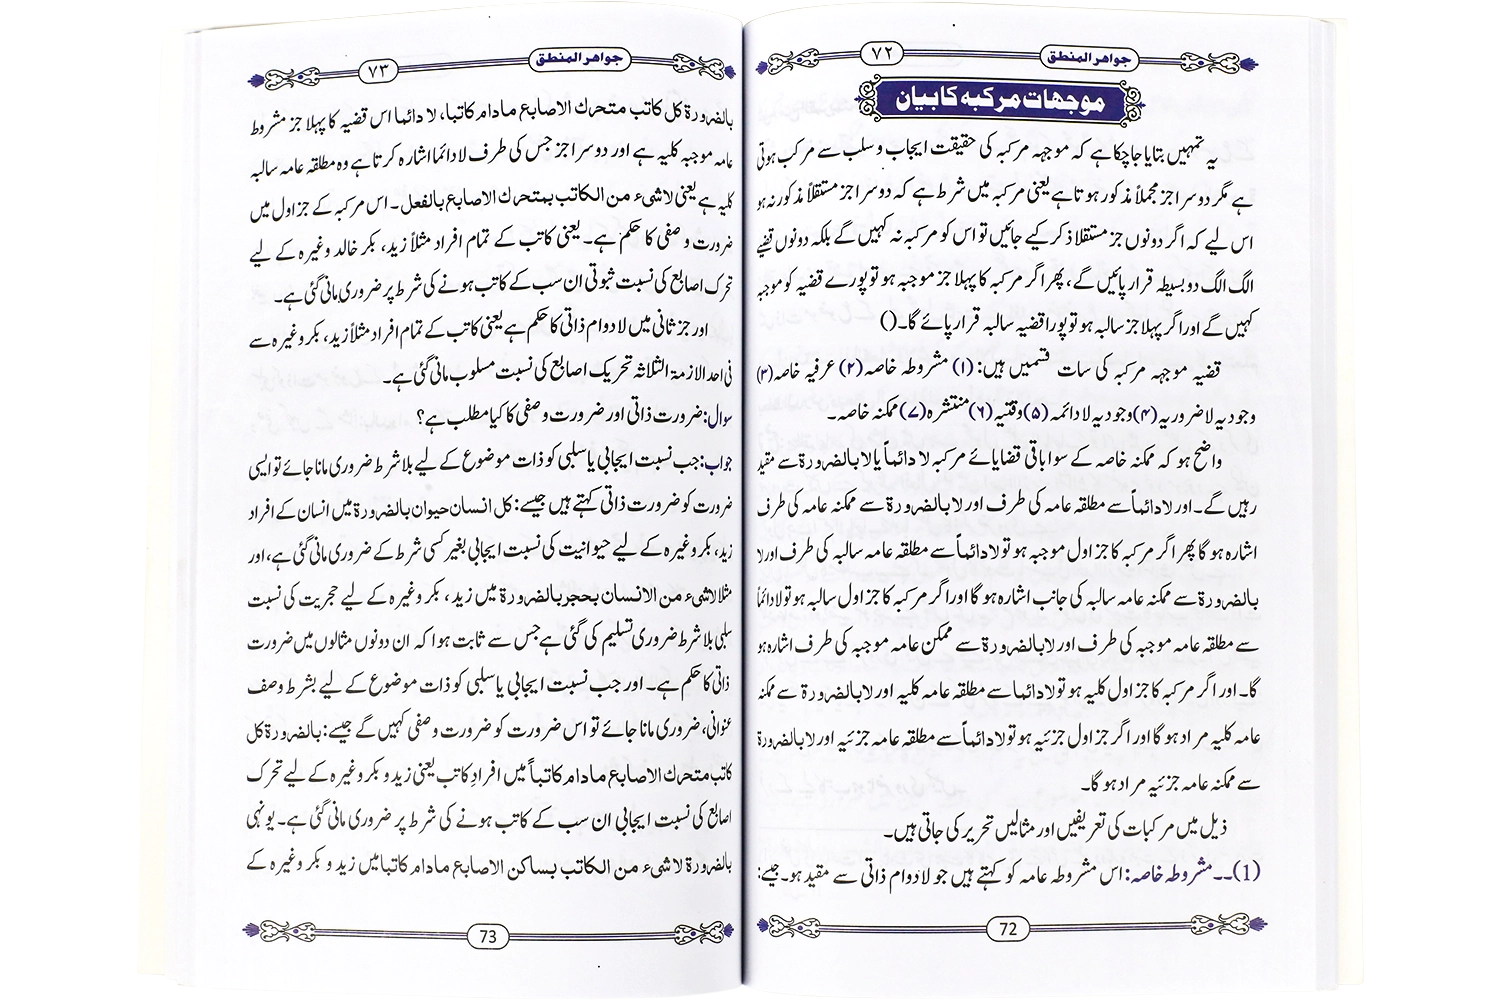 جواهر المنطق
۷۲
موجهات مرکبه کا بیان
یہ تمہیں بتایا جا چکا ہے کہ موجہہ مرکبہ کی حقیقت ایجاب و سلب سے مرکب ہوتی
ہے مگر دوسرا جز مجملاً مذکور ہوتا ہے یعنی مرکبہ میں شرط ہے کہ دوسرا جز مستقلاً مذکور نہ ہو
اس لیے کہ اگر دونوں جز مستقلا ذکر کیے جائیں تو اس کو مرکبہ نہ کہیں گے بلکہ دونوں قضیے
الگ الگ دو بسیطہ قرار پائیں گے، پھر اگر مرکبہ کا پہلا جز موجبہ ہو تو پورے قضیہ کو موجبہ
کہیں گے اور اگر پہلا جز سالبہ ہو تو پورا قضیہ سالبہ قرار پائے گا۔()
قضیہ موجہہ مرکبہ کی سات قسمیں ہیں: (۱) مشروطہ خاصہ (۲) عرفیہ خاصہ (۳)
وجودیہ لاضروریہ (۴) وجودیہ لادائمہ (۵) وقتیہ (۶) منتشرہ (۷) ممکنہ خاصہ۔
واضح ہو کہ ممکنہ خاصہ کے سوا باقی قضایائے مرکبہ لا دائماً یا لا بالضرورة سے مقید
رہیں گے۔ اور لا دائماً سے مطلقہ عامہ کی طرف اور لا بالضرورة سے ممکنہ عامہ کی طرف
اشارہ ہو گا پھر اگر مرکبہ کا جز اول موجبہ ہو تو لا دائماً سے مطلقہ عامہ سالبہ کی طرف اور لا
بالضرورة سے ممکنہ عامہ سالبہ کی جانب اشارہ ہو گا اور اگر مرکبہ کا جز اول سالبہ ہو تو لا دائماً
سے مطلقہ عامہ موجبہ کی طرف اور لا بالضرورة سے ممکن عامہ موجبہ کی طرف اشارہ ہو
گا۔ اور اگر مرکبہ کا جز اول کلیہ ہو تو لا دائما سے مطلقہ عامہ کلیہ اور لا بالضرورة سے ممکنہ
عامہ کلیہ مراد ہو گا اور اگر جز اول جزئیہ ہو تو لا دائماً سے مطلقہ عامہ جزئیہ اور لا بالضرورة
سے ممکنہ عامہ جزئیہ مراد ہو گا۔
ذیل میں مرکبات کی تعریفیں اور مثالیں تحریر کی جاتی ہیں۔
(1)۔۔مشروطہ خاصہ: اس مشروطہ عامہ کو کہتے ہیں جو لا دوام ذاتی سے مقید ہو۔ جیسے:
72
جواهر المنطق
۷۳
بالضرورة کل کاتب متحرك الاصابع مادام کاتبا، لا دائما اس قضیہ کا پہلا جز مشروطہ
عامہ موجبہ کلیہ ہے اور دوسرا جز جس کی طرف لا دائما اشارہ کرتا ہے وہ مطلقہ عامہ سالبہ
کلیہ ہے یعنی لا شیء من الکاتب بمتحرك الاصابع بالفعل۔ اس مرکبہ کے جز اول میں
ضرورت وصفی کا حکم ہے۔ یعنی کاتب کے تمام افراد مثلاً زید، بکر خالد وغیرہ کے لیے
تحرک اصابع کی نسبت ثبوتی ان سب کے کاتب ہونے کی شرط پر ضروری مانی گئی ہے۔
اور جز ثانی میں لا دوام ذاتی کا حکم ہے یعنی کاتب کے تمام افراد مثلاً زید، بکر وغیرہ سے
فی احد الازمة الثلاثہ تحریک اصابع کی نسبت مسلوب مانی گئی ہے۔
سوال: ضرورت ذاتی اور ضرورت وصفی کا کیا مطلب ہے؟
جواب: جب نسبت ایجابی یا سلبی کو ذات موضوع کے لیے بلا شرط ضروری مانا جائے تو ایسی
ضرورت کو ضرورت ذاتی کہتے ہیں جیسے: کل انسان حیوان بالضرورة میں انسان کے افراد
زید، بکر وغیرہ کے لیے حیوانیت کی نسبت ایجابی بغیر کسی شرط کے ضروری مانی گئی ہے، اور
مثلا لا شیء من الانسان بحجر بالضرورة میں زید، بکر وغیرہ کے لیے حجریت کی نسبت
سلبی بلا شرط ضروری تسلیم کی گئی ہے جس سے ثابت ہوا کہ ان دونوں مثالوں میں ضرورت
ذاتی کا حکم ہے۔ اور جب نسبت ایجابی یا سلبی کو ذات موضوع کے لیے بشرط وصف
عنوانی، ضروری مانا جائے تو اس ضرورت کو ضرورت وصفی کہیں گے جیسے: بالضرورة کل
کاتب متحرك الاصابع مادام کاتباً میں افرادِ کاتب یعنی زید و بکر وغیرہ کے لیے تحرک
اصابع کی نسبت ایجابی ان سب کے کاتب ہونے کی شرط پر ضروری مانی گئی ہے۔ یونہی
بالضرورة لا شیء من الکاتب بساکن الاصابع مادام کاتبا میں زید و بکر وغیرہ کے
73